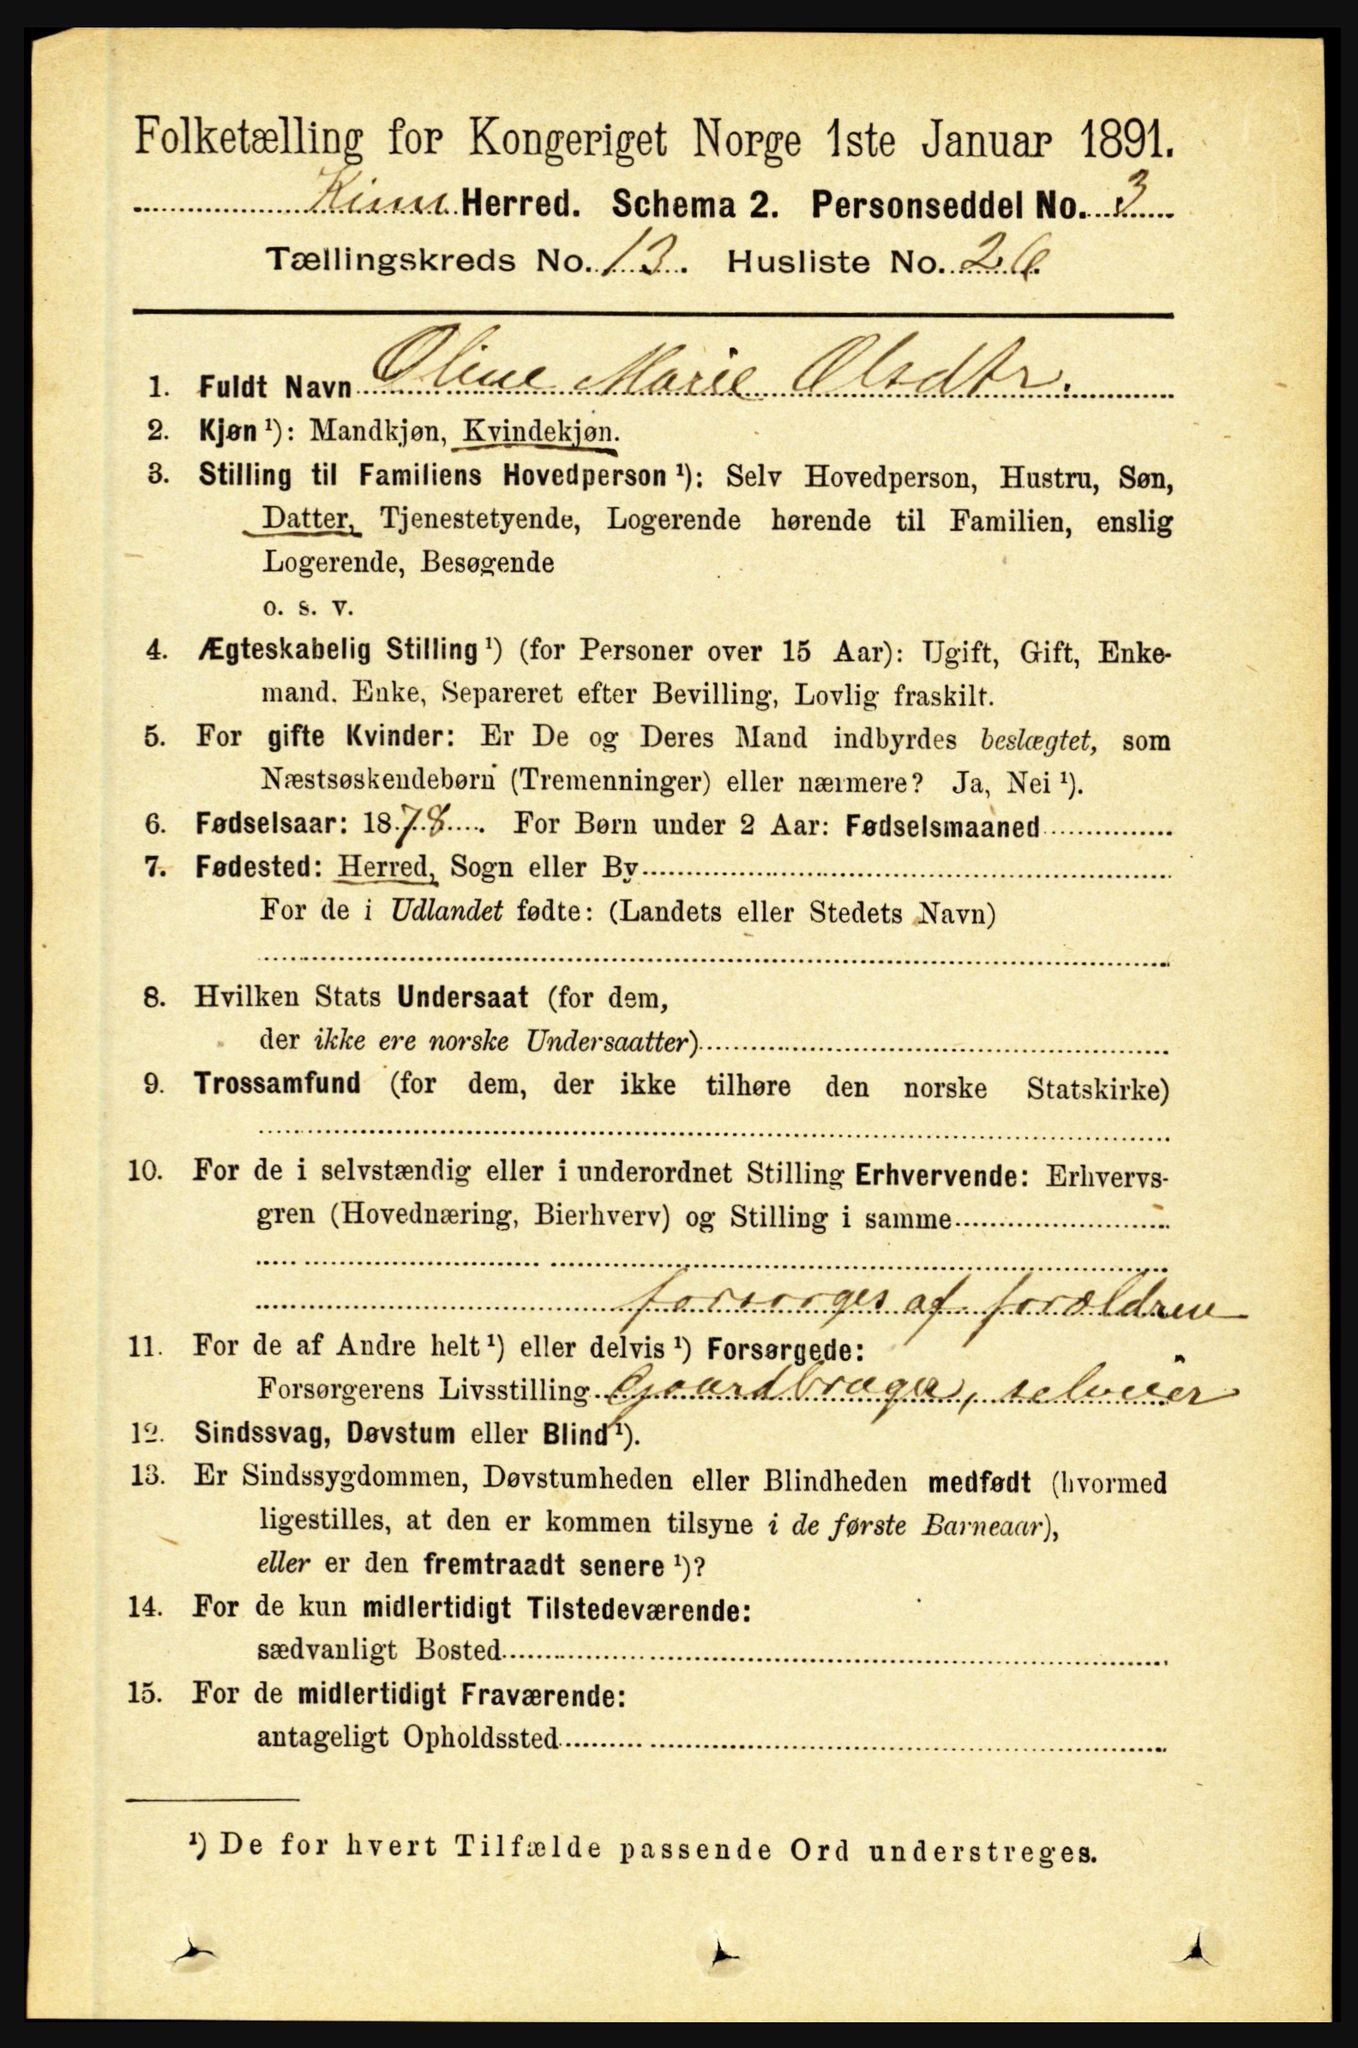 Folketælling for Kongeriget Norge 1ste Januar 1891.
Kinn Herred. Schema 2. Personseddel No. 3
Tællingskreds No. 13. Husliste No. 26.
1. Fuldt Navn Oline Marie Olsdtr.
2. Kjøn ¹): Mandkjøn, Kvindekjøn.
3. Stilling til Familiens Hovedperson ¹): Selv Hovedperson, Hustru, Søn,
Datter, Tjenestetyende, Logerende hørende til Familien, enslig
Logerende, Besøgende
o. s. v.
4. Ægteskabelig Stilling ¹) (for Personer over 15 Aar): Ugift, Gift, Enke-
mand. Enke, Separeret efter Bevilling, Lovlig fraskilt.
5. For gifte Kvinder: Er De og Deres Mand indbyrdes beslægtet, som
Næstsøskendebørn (Tremenninger) eller nærmere? Ja, Nei ¹).
6. Fødselsaar: 1878. For Børn under 2 Aar: Fødselsmaaned
7. Fødested: Herred, Sogn eller By
For de i Udlandet fødte: (Landets eller Stedets Navn)
8. Hvilken Stats Undersaat (for dem,
der ikke ere norske Undersaatter)
9. Trossamfund (for dem, der ikke tilhøre den norske Statskirke)
10. For de i selvstændig eller i underordnet Stilling Erhvervende: Erhvervs-
gren (Hovednæring, Bierhverv) og Stilling i samme
forsorges af forældrene
11. For de af Andre helt ¹) eller delvis ¹) Forsørgede:
Forsørgerens Livsstilling Gaardbruger, selveier
12. Sindssvag, Døvstum eller Blind ¹).
13. Er Sindssygdommen, Døvstumheden eller Blindheden medfødt (hvormed
ligestilles, at den er kommen tilsyne i de første Barneaar),
eller er den fremtraadt senere ¹)?
14. For de kun midlertidigt Tilstedeværende:
sædvanligt Bosted
15. For de midlertidigt Fraværende:
antageligt Opholdssted
¹) De for hvert Tilfælde passende Ord understreges.